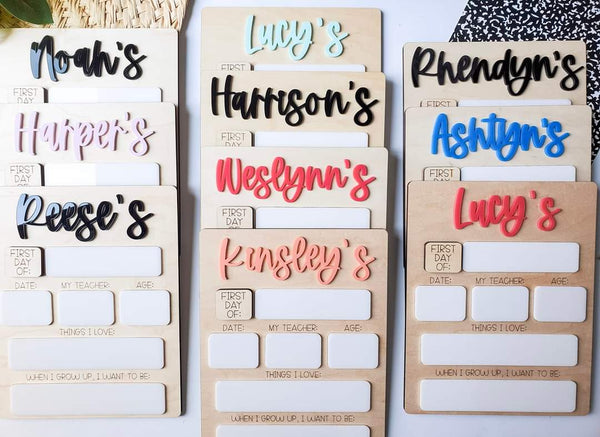 Noah's
FIRST
DAY
Harper's
FIRST
DAY
Reese's
FIRST
DAY
OF:
DATE: MY TEACHER: AGE:
THINGS I LOVE:
WHEN I GROW UP, I WANT TO BE:
Lucy's
Harrison's
FIRST
DAY
Weslynn's
FIRST
DAY
Kinsley's
FIRST
DAY
OF:
DATE: MY TEACHER: AGE:
THINGS I LOVE:
WHEN I GROW UP, I WANT TO BE:
Rhendyn's
FIRST
Ashtyn's
FIRST
Lucy's
FIRST
DAY
OF:
DATE: MY TEACHER: AGE:
THINGS I LOVE:
WHEN I GROW UP, I WANT TO BE: